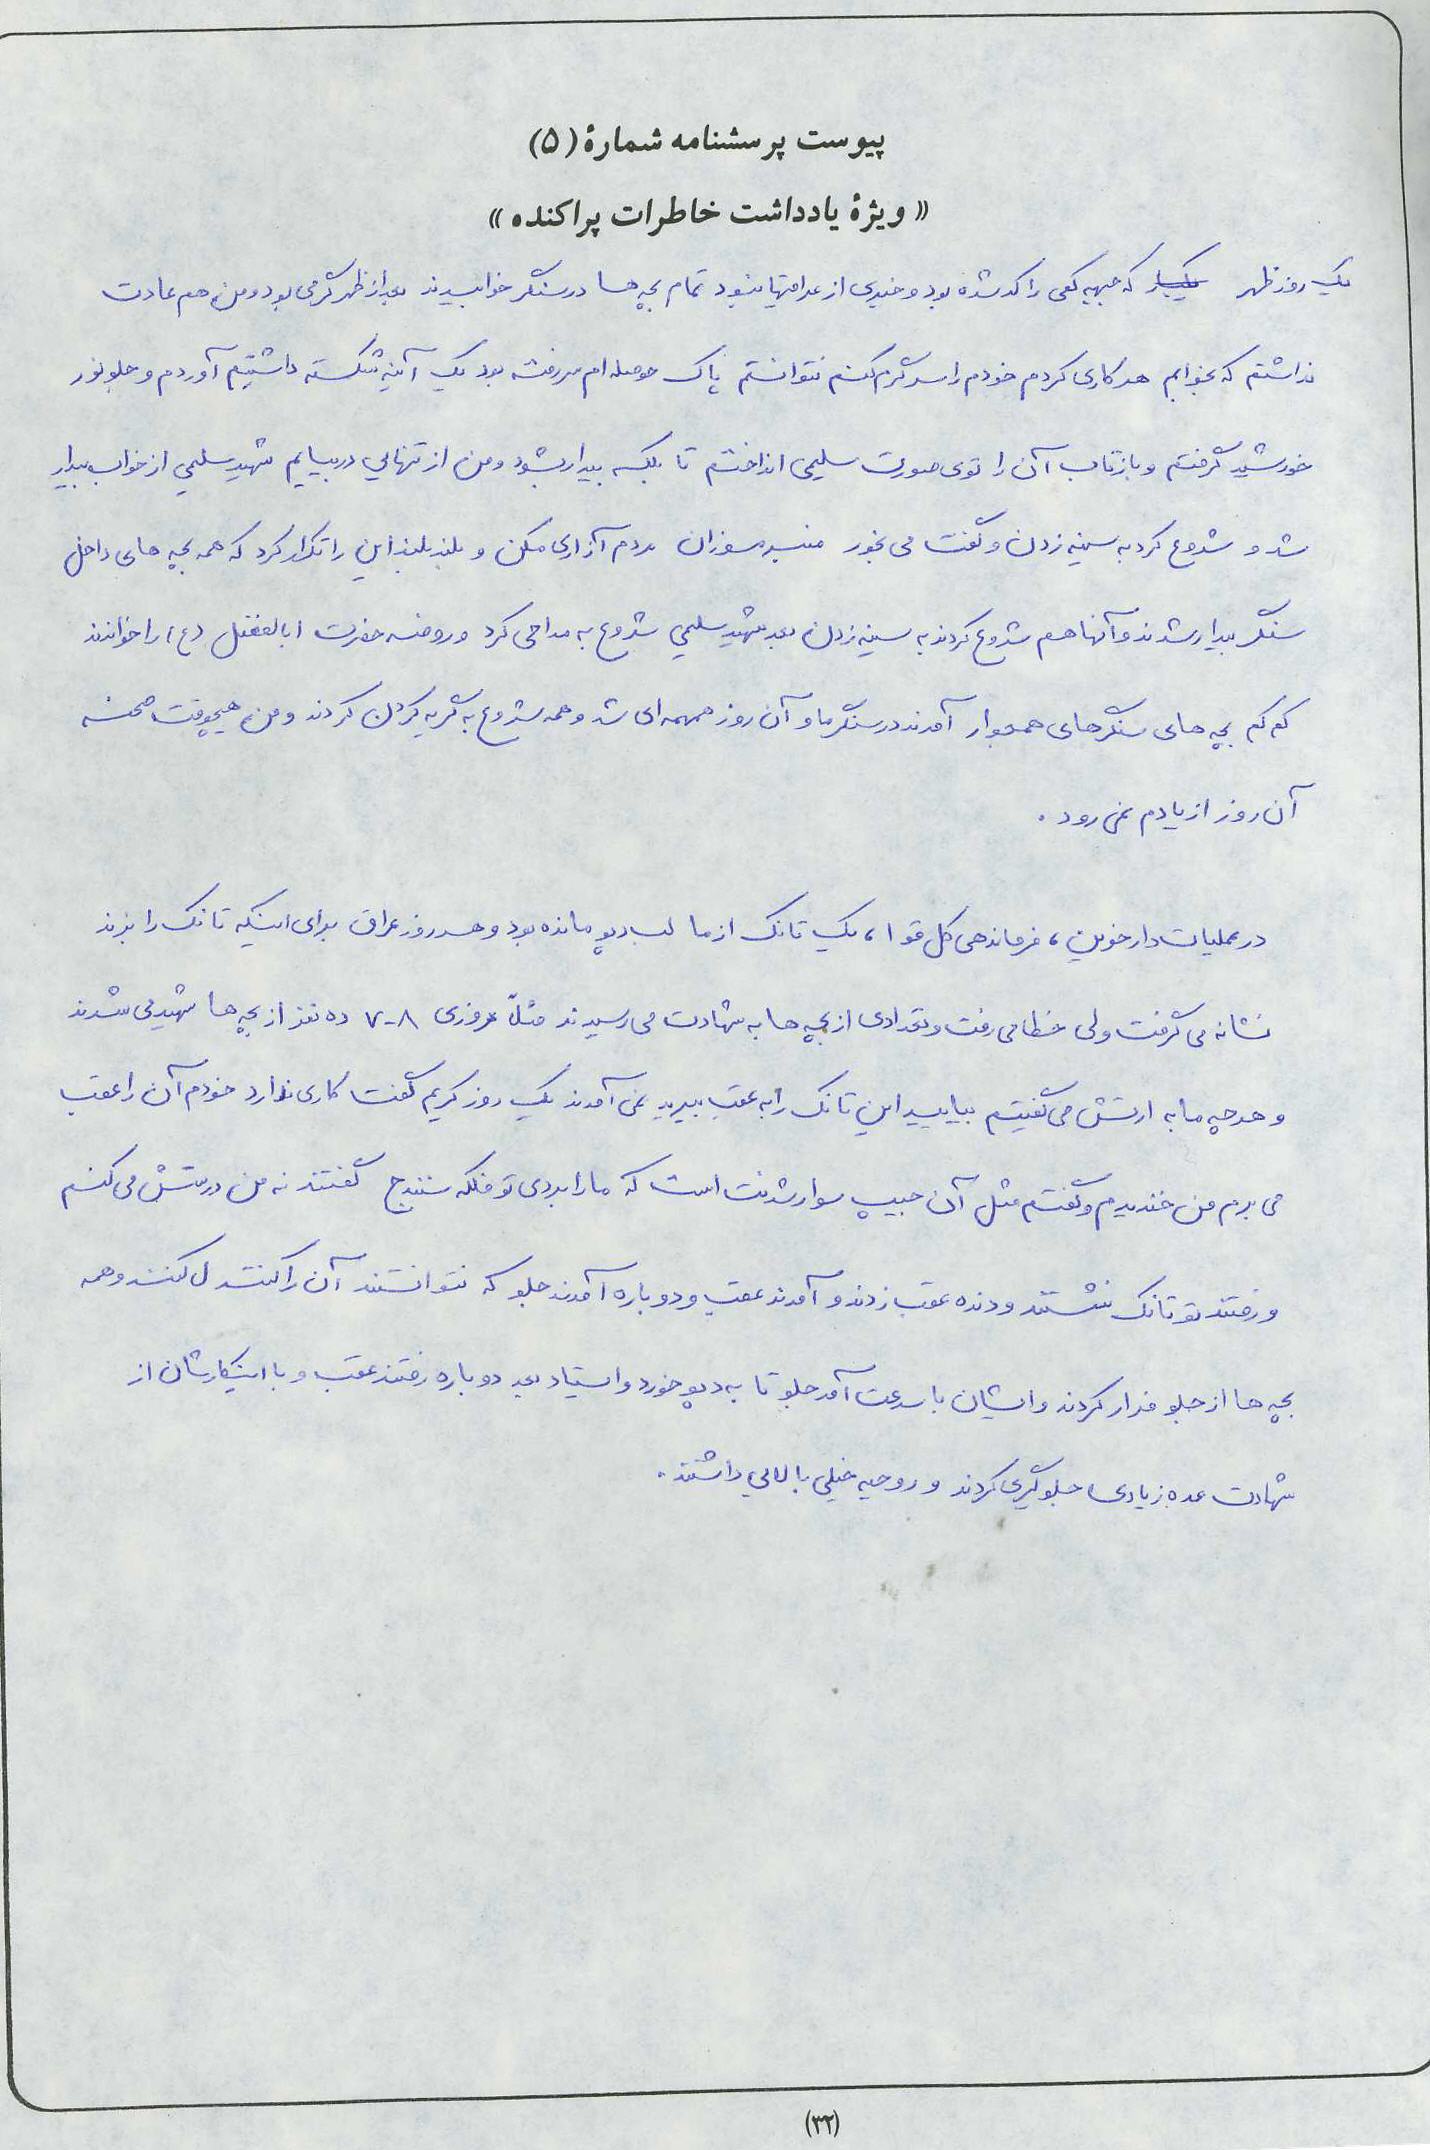 پیوست پرسشنامه شمارهٔ (۵)
« ویژهٔ یادداشت خاطرات پراکنده »
یک روز ظهر که جبهه کمی راکد شده بود و خبری از عراقیها نبود تمام بچه ها در سنگر خوابیدند بعد از ظهر گرمی بود و من هم عادت
نداشتم که بخوابم هر کاری کردم خودم را سرگرم کنم نتوانستم پاک حوصله ام سر رفته بود یک آئینه شکسته داشتیم آوردم و جلو نور
خورشید گرفتم و بازتاب آن را توی صورت سلیمی انداختم تا بلکه بیدار بشود و من از تنهایی در بیایم شهید سلیمی از خواب بیدار
شد و شروع کرد به سینه زدن و گفت می بخور منبر بسوزان مردم آزاری مکن و بلند بلند این را تکرار کرد که همه بچه های داخل
سنگر بیدار شدند و آنها هم شروع کردند به سینه زدن بعد شهید سلیمی شروع به مداحی کرد و روضه حضرت ابالفضل (ع) را خواندند
کم کم بچه های سنگرهای همجوار آمدند در سنگر ما و آن روز همهمه ای شد و همه شروع به گریه کردن کردند و من هیچوقت صحنه
آن روز از یادم نمی رود .
در عملیات دارخوین ، فرماندهی کل قوا ، یک تانک از ما لب دپو مانده بود و هر روز عراق برای اینکه تانک را بزند
نشانه می گرفت ولی خطا می رفت و تعدادی از بچه ها به شهادت می رسیدند مثلاً روزی ۸-۷ ده نفر از بچه ها شهید می شدند
و هر چه ما به ارتش می گفتیم بیایید این تانک را به عقب ببرید نمی آمدند یک روز کریم گفت کاری ندارد خودم آن را عقب
می برم من خندیدم و گفتم مثل آن جیپ سوار شدنت است که ما را بردی تو فلکه سنندج گفتند نه من درستش می کنم
و رفتند تو تانک نشستند و دنده عقب زدند و آمدند عقب و دوباره آمدند جلو که نتوانستند آن را کنترل کنند و همه
بچه ها از جلو فرار کردند و ایشان با سرعت آمد جلو تا به دپو خورد و ایستاد بعد دوباره رفتند عقب و با اینکارشان از
شهادت عده زیادی جلوگیری کردند و روحیه خیلی بالایی داشتند .
(۳۲)